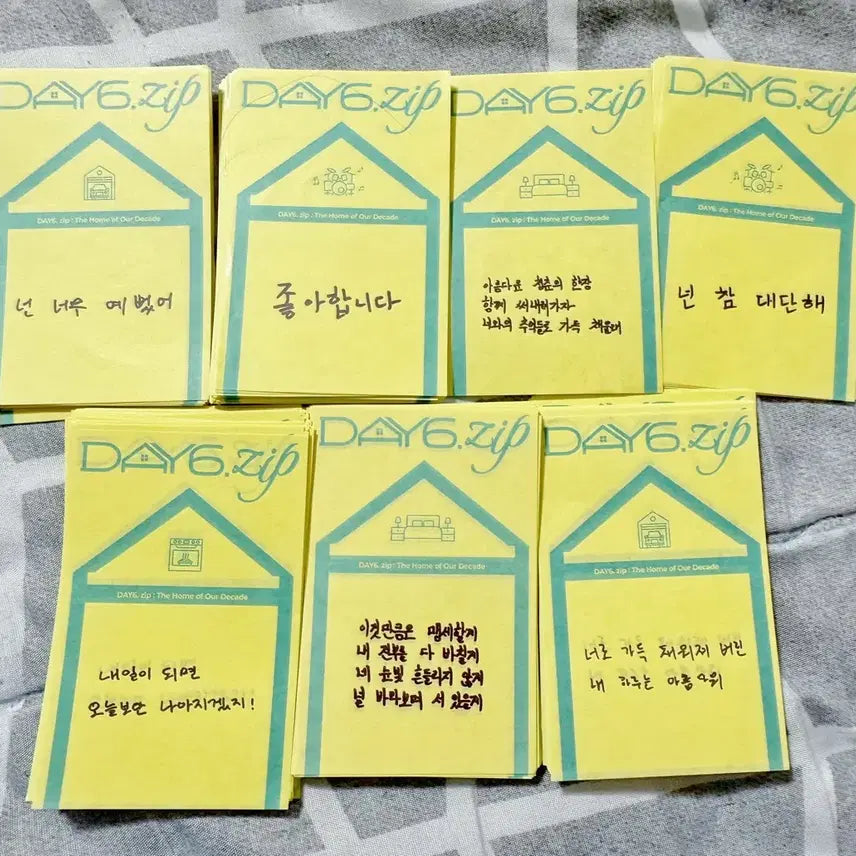 DAY6.zip
DAY6. zip : The Home of Our Decade
넌 너무 예뻤어
DAY6.zip
DAY6. zip : The Home of Our Decade
좋아합니다
DAY6.zip
DAY6. zip : The Home of Our Decade
아름다운 청춘의 한장
함께 써내려가자
너와의 추억들로 가득 채울래
DAY6.zip
DAY6. zip : The Home of Our Decade
넌 참 대단해
DAY6.zip
DAY6. zip : The Home of Our Decade
내일이 되면
오늘보단 나아지겠지!
DAY6.zip
DAY6. zip : The Home of Our Decade
이것만큼은 맹세할게
내 전부를 다 바칠게
네 눈빛 흔들리지 않게
널 바라보며 서 있을게
DAY6.zip
DAY6. zip : The Home of Our Decade
너로 가득 채워져 버린
내 하루는 아름다워